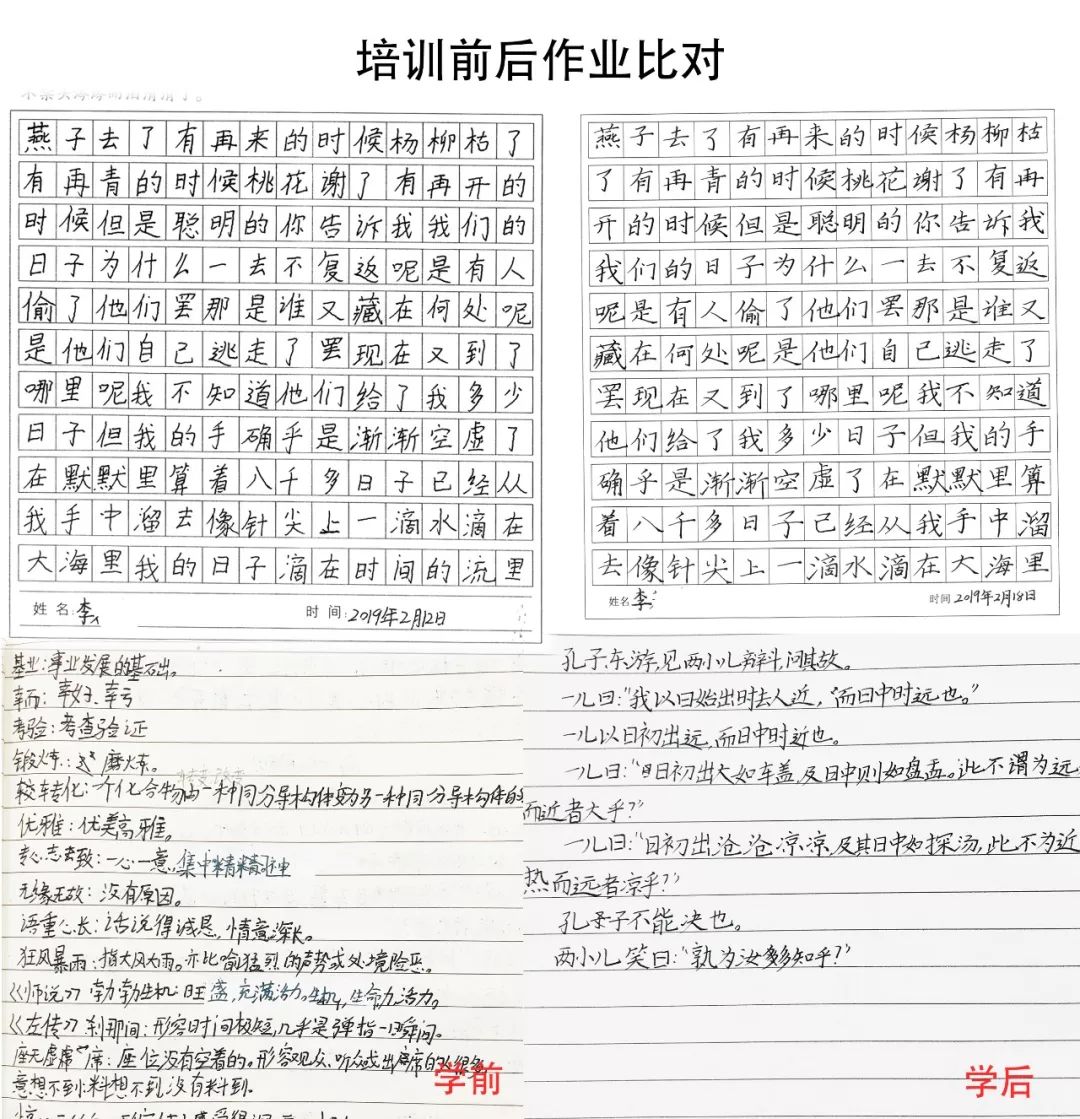 培训前后作业比对
燕子去了有再来的时候杨柳枯了
有再青的时候桃花谢了有再开的
时候但是聪明的你告诉我我们的
日子为什么一去不复返呢是有人
偷了他们罢那是谁又藏在何处呢
是他们自己逃走了罢现在又到了
哪里呢我不知道他们给了我多少
日子但我的手确乎是渐渐空虚了
在默默里算着八千多日子已经从
我手中溜去像针尖上一滴水滴在
大海里我的日子滴在时间的流里
姓名:李
时间:2019年2月12日
燕子去了有再来的时候杨柳枯
了有再青的时候桃花谢了有再
开的时候但是聪明的你告诉我
我们的日子为什么一去不复返
呢是有人偷了他们罢那是谁又
藏在何处呢是他们自己逃走了
罢现在又到了哪里呢我不知道
他们给了我多少日子但我的手
确乎是渐渐空虚了在默默里算
着八千多日子已经从我手中溜
去像针尖上一滴水滴在大海里
姓名李
时间2019年2月18日
基业:事业发展的基础。
幸而:幸好、幸亏
考验:考查验证
锻炼:磨炼。
较转化:一个化合物由一种同分异构体变为另一种同分异构体的
优雅:优美高雅。
专心志致:一心一意,集中精神
无缘无故:没有原因。
语重心长:话说得诚恳,情意深长。
狂风暴雨:指大风大雨。亦比喻猛烈的声势或处境险恶。
《师说》勃勃生机:旺盛,充满活力。生机,生命力,活力。
《左传》刹那间:形容时间极短,几乎是弹指一瞬间。
座无虚席:座位没有空着的。形容观众、听众或出席的人很多
意想不到:料想不到,没有料到。
学前
孔子东游,见两小儿辩斗,问其故。
一儿曰:“我以日始出时去人近,而日中时远也。”
一儿以日初出远,而日中时近也。
一儿曰:“日初出大如车盖,及日中则如盘盂。此不谓为远
而近者大乎?”
一儿曰:“日初出沧沧凉凉,及其日中如探汤,此不为近
热而远者凉乎?”
孔子不能决也。
两小儿笑曰:“孰为汝多知乎?”
学后